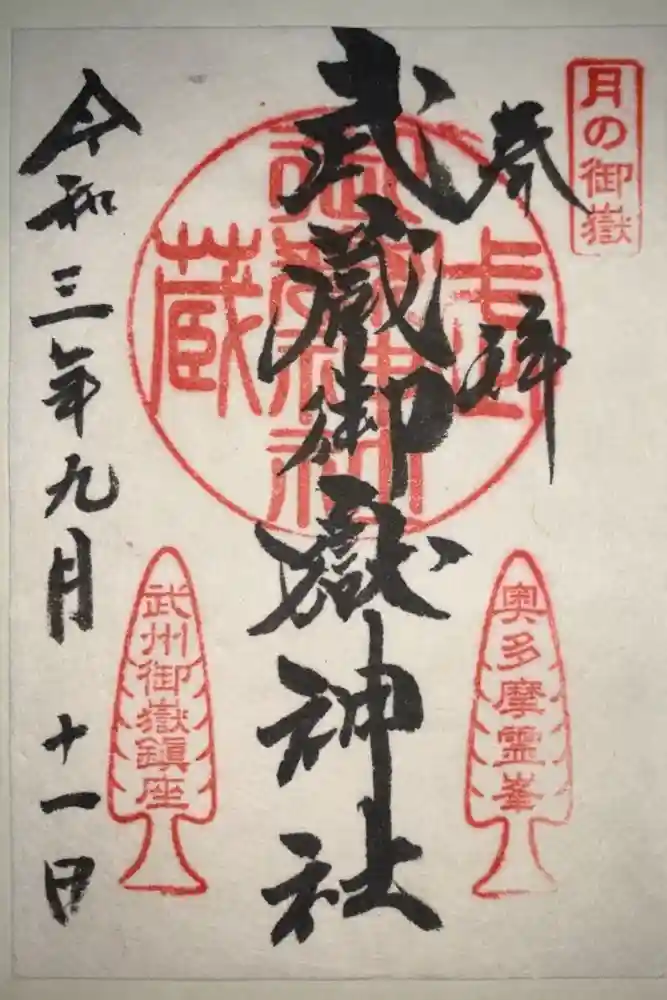 月の御嶽
奉拝
武蔵御嶽神社
武蔵
御嶽神社
奥多摩霊峯
武州御嶽鎮座
令和三年九月十一日